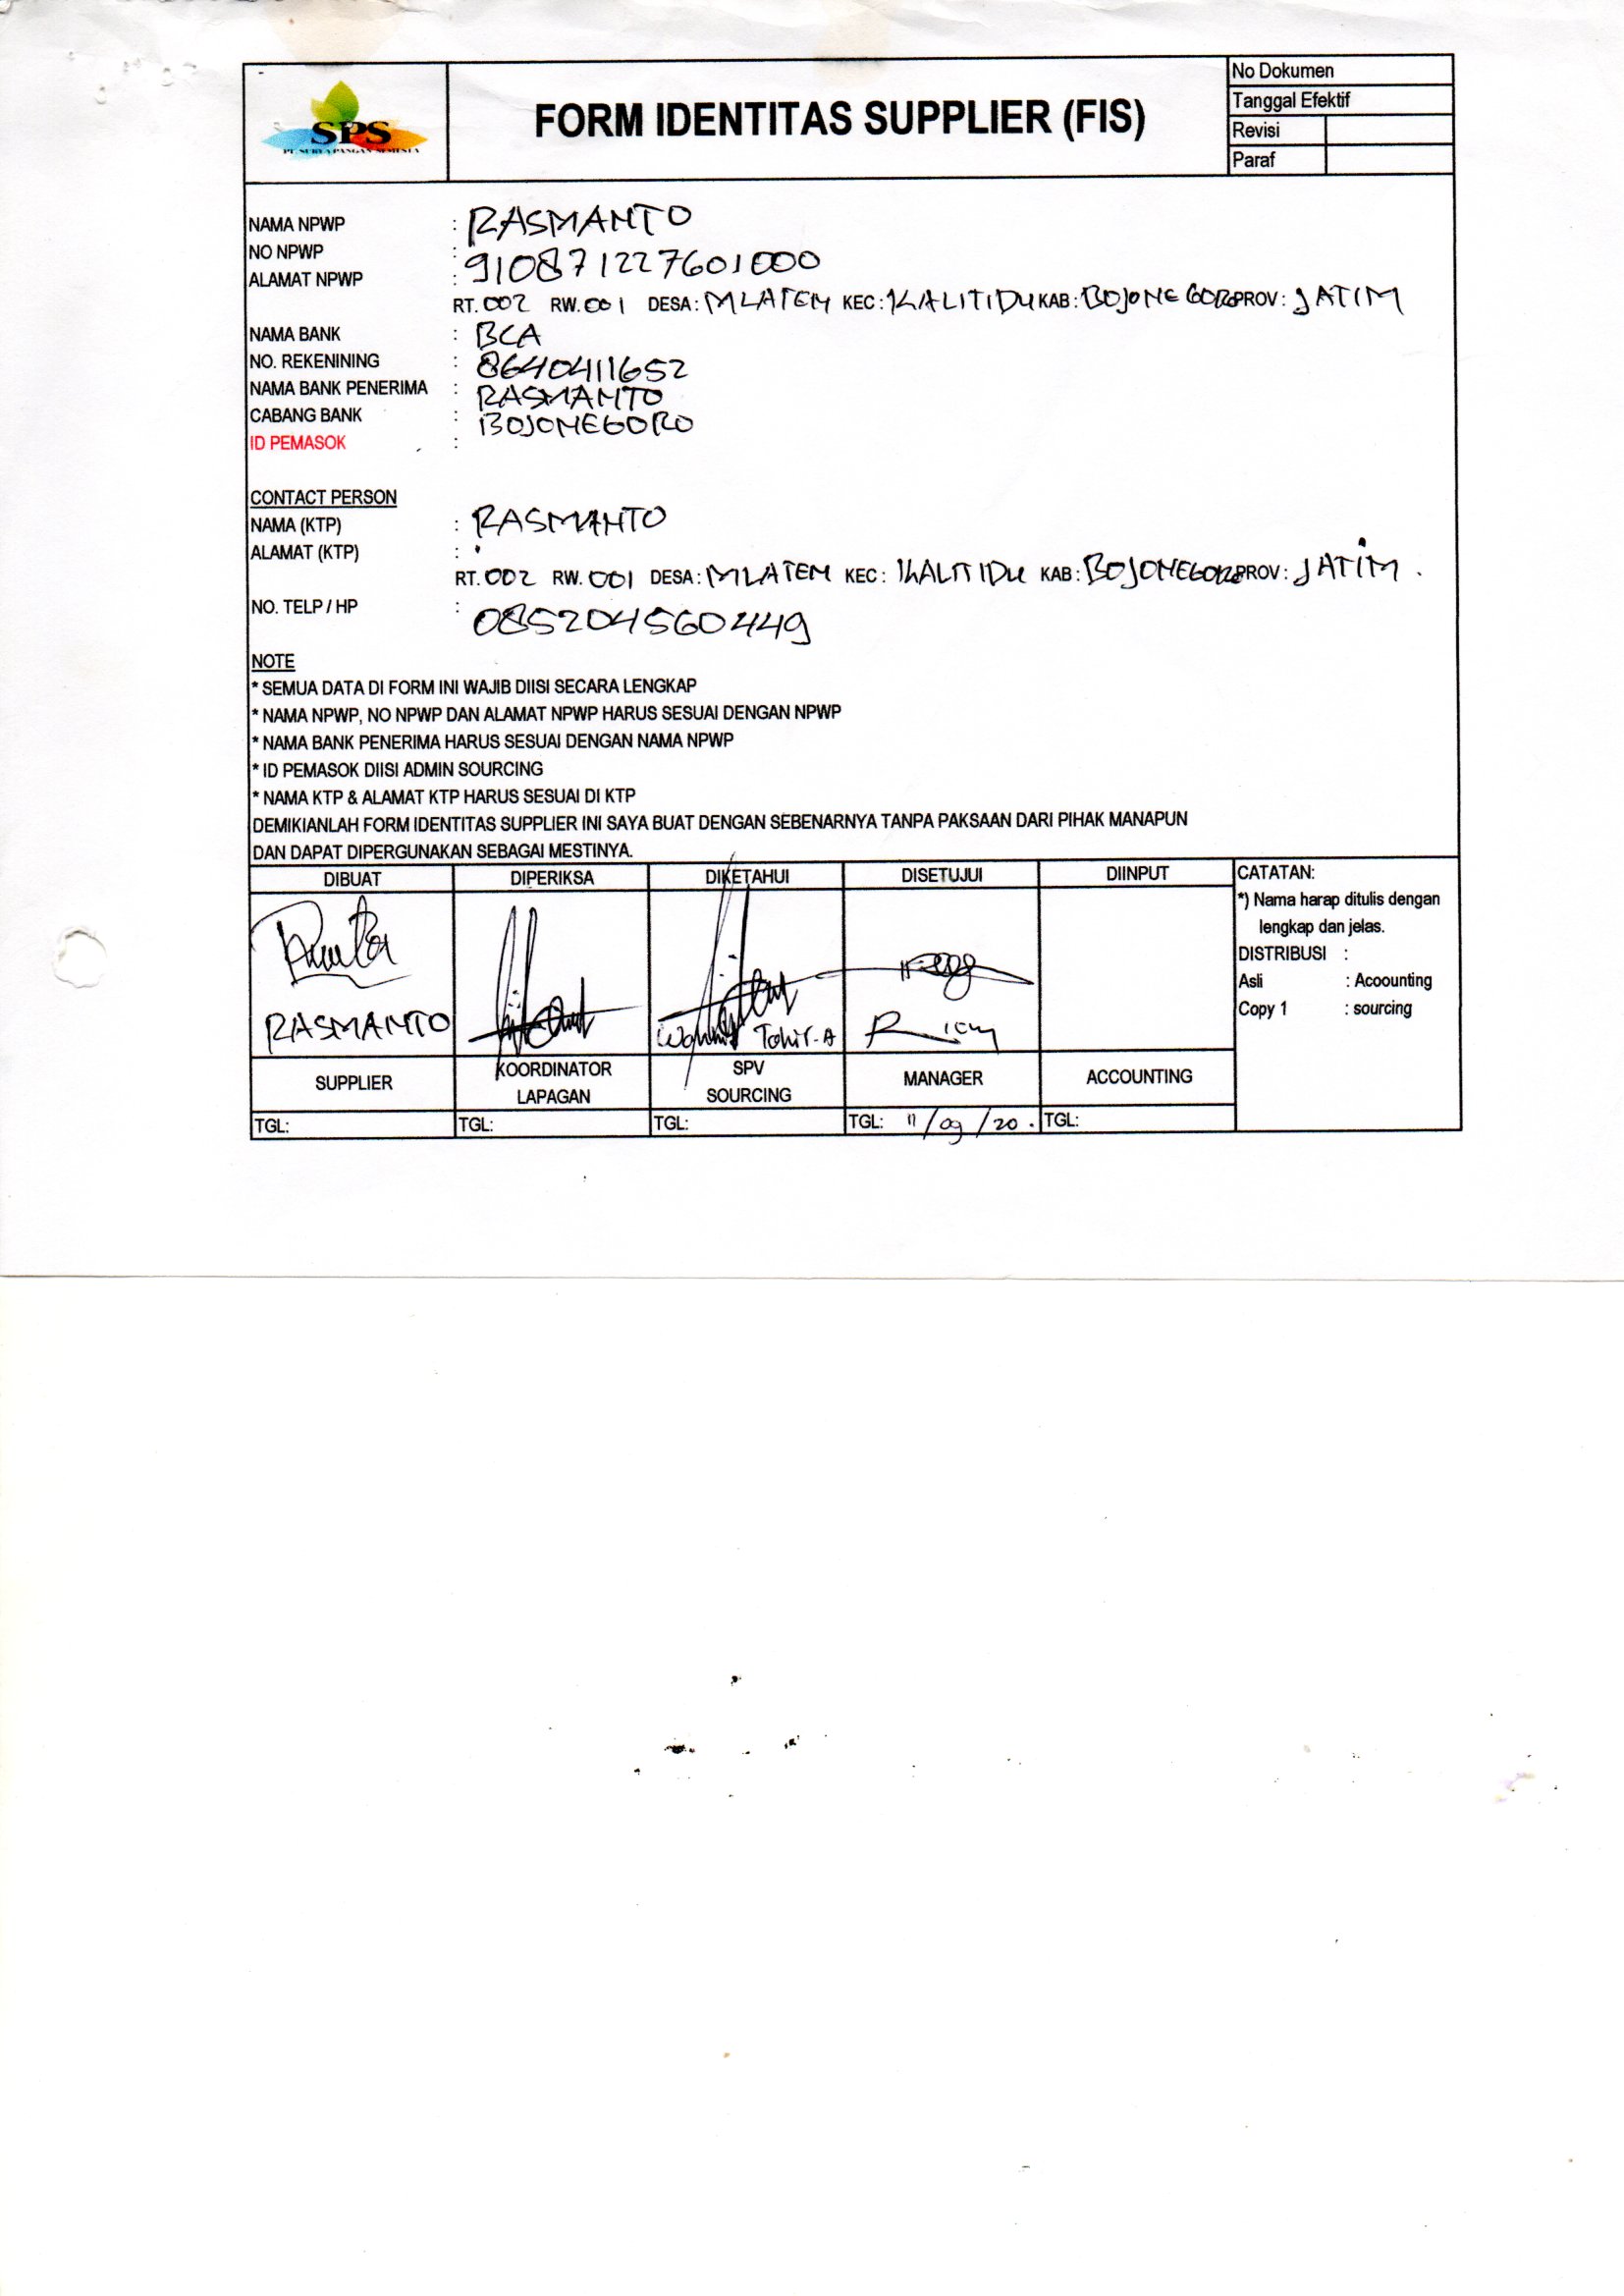 SPS
PT. SURYA PANGAN SEMESTA
FORM IDENTITAS SUPPLIER (FIS)
No Dokumen
Tanggal Efektif
Revisi
Paraf
NAMA NPWP : RASMANTO
NO NPWP : 910871227601000
ALAMAT NPWP :
RT. 002 RW. 001 DESA: MLATEN KEC: KALITIDU KAB: BOJONEGORO PROV: JATIM
NAMA BANK : BCA
NO. REKENINING : 8640411652
NAMA BANK PENERIMA : RASMANTO
CABANG BANK : BOJONEGORO
ID PEMASOK :
CONTACT PERSON
NAMA (KTP) : RASMANTO
ALAMAT (KTP) :
RT. 002 RW. 001 DESA: MLATEN KEC: KALITIDU KAB: BOJONEGORO PROV: JATIM.
NO. TELP / HP : 085204560449
NOTE
* SEMUA DATA DI FORM INI WAJIB DIISI SECARA LENGKAP
* NAMA NPWP, NO NPWP DAN ALAMAT NPWP HARUS SESUAI DENGAN NPWP
* NAMA BANK PENERIMA HARUS SESUAI DENGAN NAMA NPWP
* ID PEMASOK DIISI ADMIN SOURCING
* NAMA KTP & ALAMAT KTP HARUS SESUAI DI KTP
DEMIKIANLAH FORM IDENTITAS SUPPLIER INI SAYA BUAT DENGAN SEBENARNYA TANPA PAKSAAN DARI PIHAK MANAPUN
DAN DAPAT DIPERGUNAKAN SEBAGAI MESTINYA.
DIBUAT DIPERIKSA DIKETAHUI DISETUJUI DIINPUT
CATATAN:
*) Nama harap ditulis dengan
lengkap dan jelas.
DISTRIBUSI :
Asli : Acoounting
Copy 1 : sourcing
RASMANTO Tohir-A
SUPPLIER KOORDINATOR LAPAGAN SPV SOURCING MANAGER ACCOUNTING
TGL: TGL: TGL: TGL: 11/09/20. TGL: